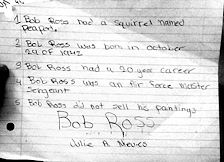 1 Bob Ross had a squirrel named
Peapod.
2 Bob Ross was born in october
29 OF 1942
3 Bob Ross had a 20 year career
4 Bob Ross was an Air force Master
Sergeant
5 Bob Ross did not sell his paintings
Bob Ross
Julie A